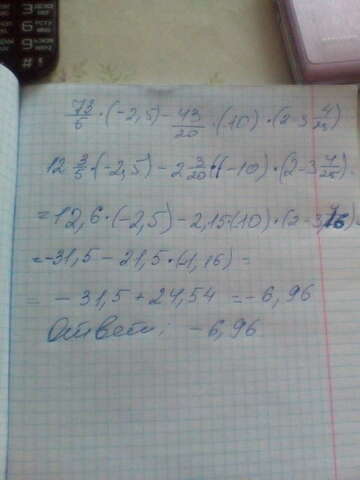 3
6
9
#
73/5 · (-2,5) - 43/20 · (10) · (2-3 4/25)
12 3/5 · (-2,5) - 2 3/20 · (-10) · (2-3 4/25).
=12,6 · (-2,5) - 2,15 · (10) · (2-3,16)
=-31,5 - 21,5 · (1,16) =
= -31,5 + 24,54 = -6,96
Ответ: -6,96